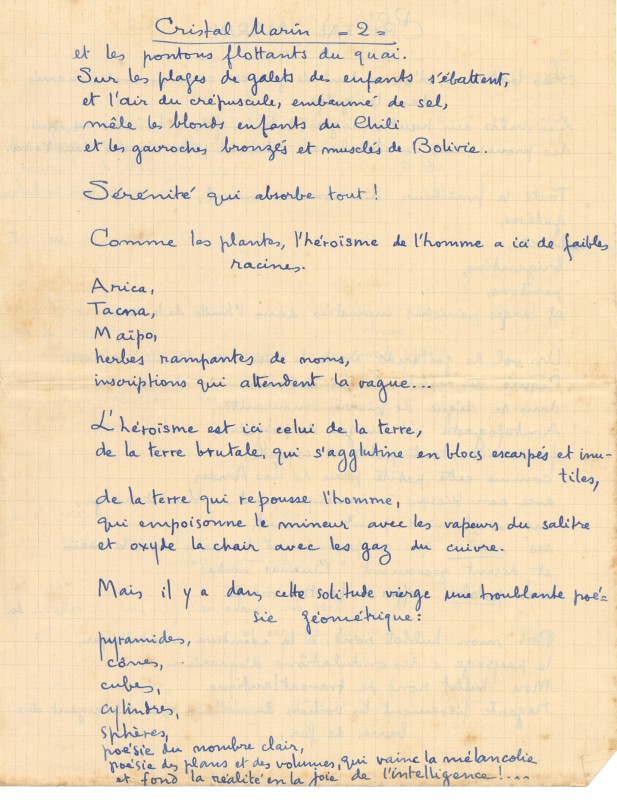 Cristal Marin = 2 =
et les pontons flottants du quai.
Sur les plages de galets des enfants s'ébattent,
et l'air du crépuscule, embaumé de sel,
mêle les blonds enfants du Chili
et les gavroches bronzés et musclés de Bolivie.
Sérénité qui absorbe tout !
Comme les plantes, l'héroïsme de l'homme a ici de faibles
racines.
Arica,
Tacna,
Maïpo,
herbes rampantes de noms,
inscriptions qui attendent la vague...
L'héroïsme est ici celui de la terre,
de la terre brutale, qui s'agglutine en blocs escarpés et inu-
tiles,
de la terre qui repousse l'homme,
qui empoisonne le mineur avec les vapeurs du salitre
et oxyde la chair avec les gaz du cuivre.
Mais il y a dans cette solitude vierge une troublante poé-
sie géométrique :
pyramides,
cônes,
cubes,
cylindres,
sphères,
poésie du nombre clair,
poésie des plans et des volumes, qui vainc la mélancolie
et fond la réalité en la joie de l'intelligence !....